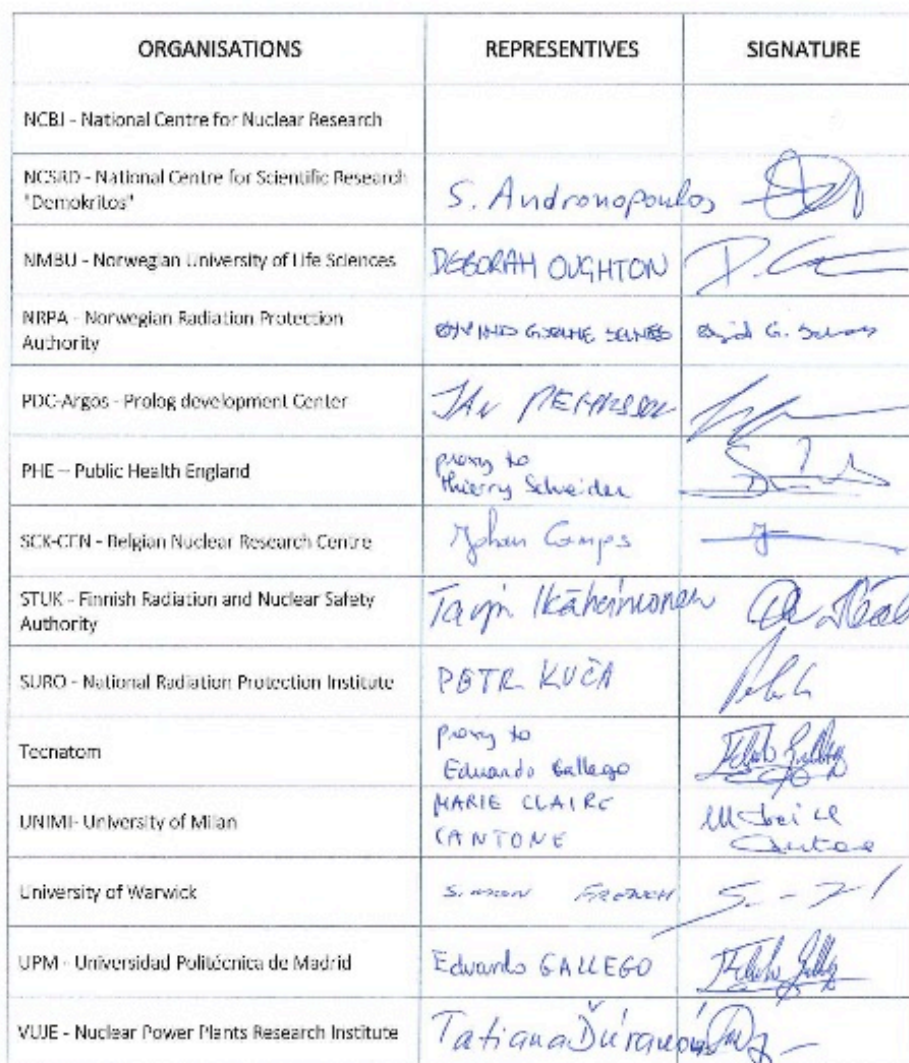 ORGANISATIONS REPRESENTIVES SIGNATURE
NCBJ - National Centre for Nuclear Research
NCSRD - National Centre for Scientific Research
"Demokritos"
S. Andronopoulos
NMBU - Norwegian University of Life Sciences
DEBORAH OUGHTON
NRPA - Norwegian Radiation Protection
Authority
PDC-Argos - Prolog development Center
JAN
PHE – Public Health England
proxy to
Thierry Schneider
SCK-CEN - Belgian Nuclear Research Centre
Johan Camps
STUK - Finnish Radiation and Nuclear Safety
Authority
Tarja Ikäheimonen
SURO - National Radiation Protection Institute
PETR KUČA
Tecnatom
proxy to
Eduardo Gallego
UNIMI- University of Milan
MARIE CLAIRE
CANTONE
University of Warwick
Simon FRENCH
UPM - Universidad Politécnica de Madrid
Eduardo GALLEGO
VUJE - Nuclear Power Plants Research Institute
Tatiana Ďúranová